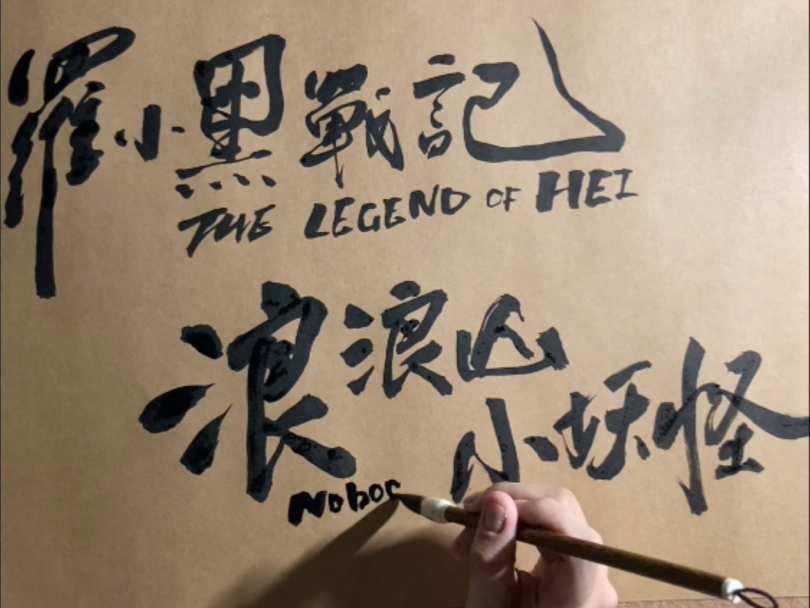 羅小黑戰記
THE LEGEND OF HEI
浪浪山
小妖怪
Noboc